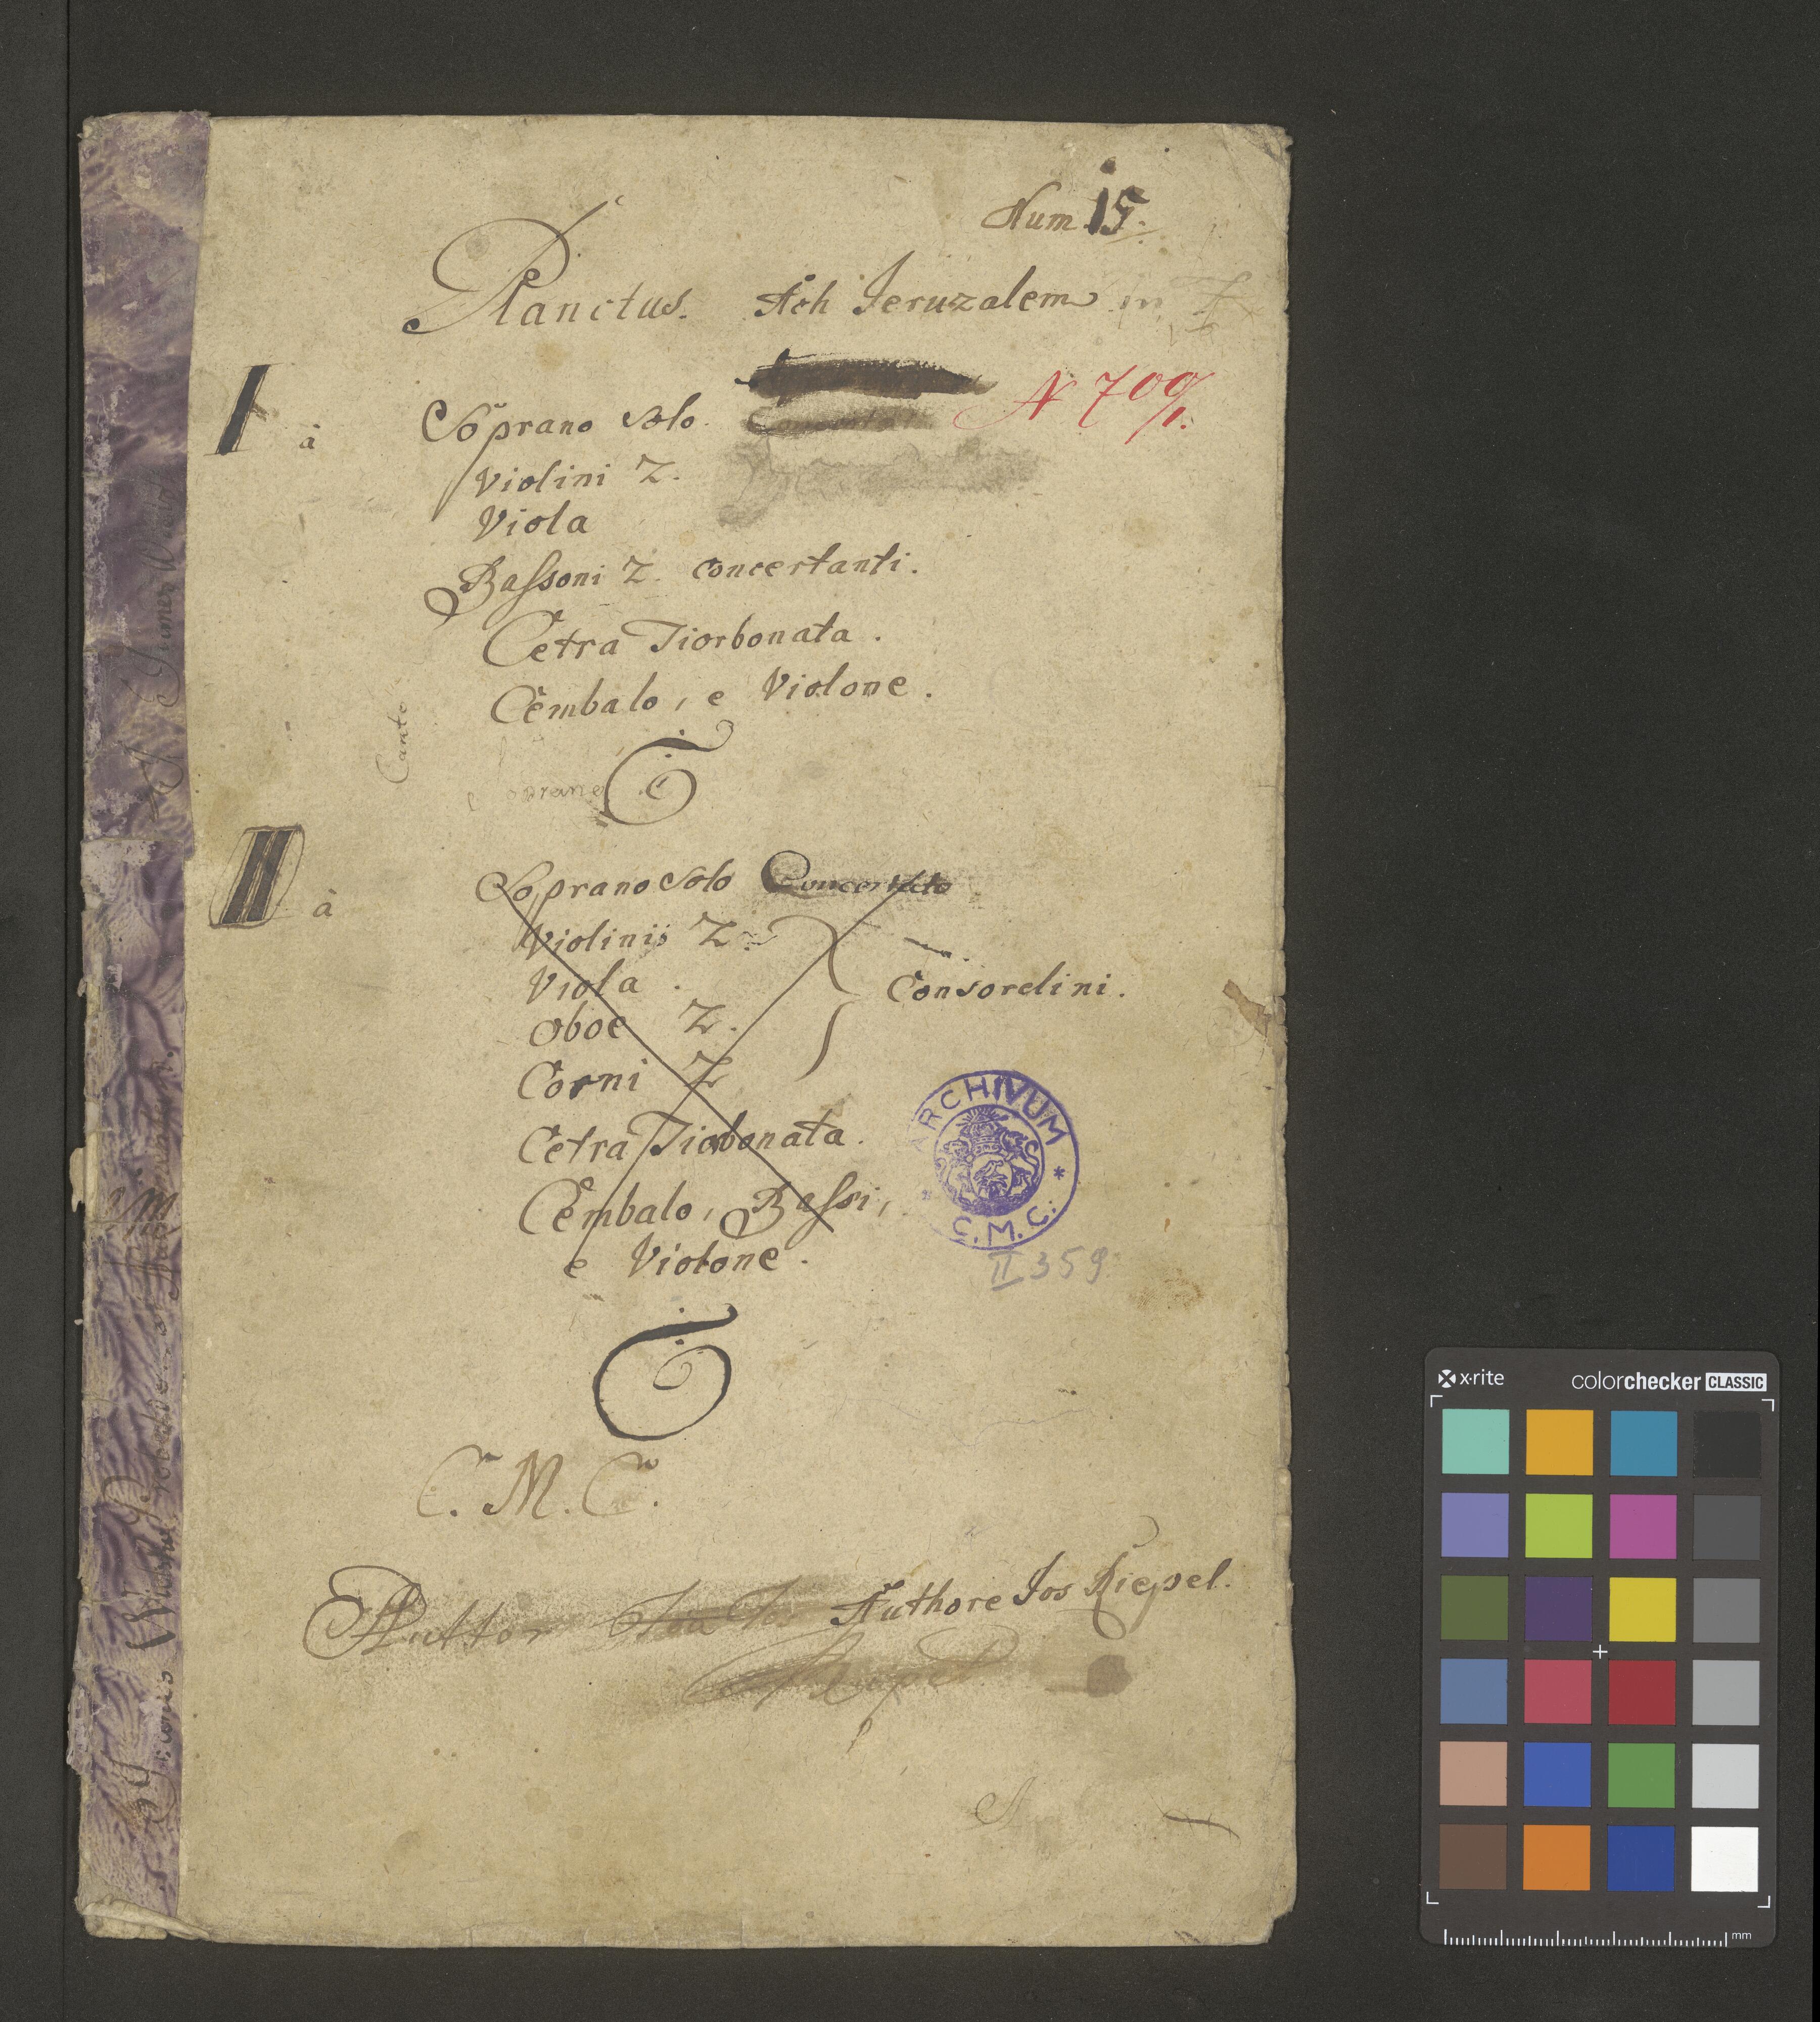 Num 15.
Planctus. Ach Jeruzalem in
I à Soprano Solo.
N 709/1.
Violini 2.
Viola
Bassoni 2. concertanti.
Cetra Tiorbonata.
Cembalo, e Violone.
Canto
II à Soprano Solo Concertato
Violinis 2.
Viola.
Oboe 2.
Consordini.
Corni 2
Cetra Tiorbonata.
Cembalo, Bassi,
e Violone.
ARCHIVUM
C. M. C.
II 359.
C. M. C.
Auttor Authore Jos Riepel.
Riepel
x-rite
colorchecker CLASSIC
mm